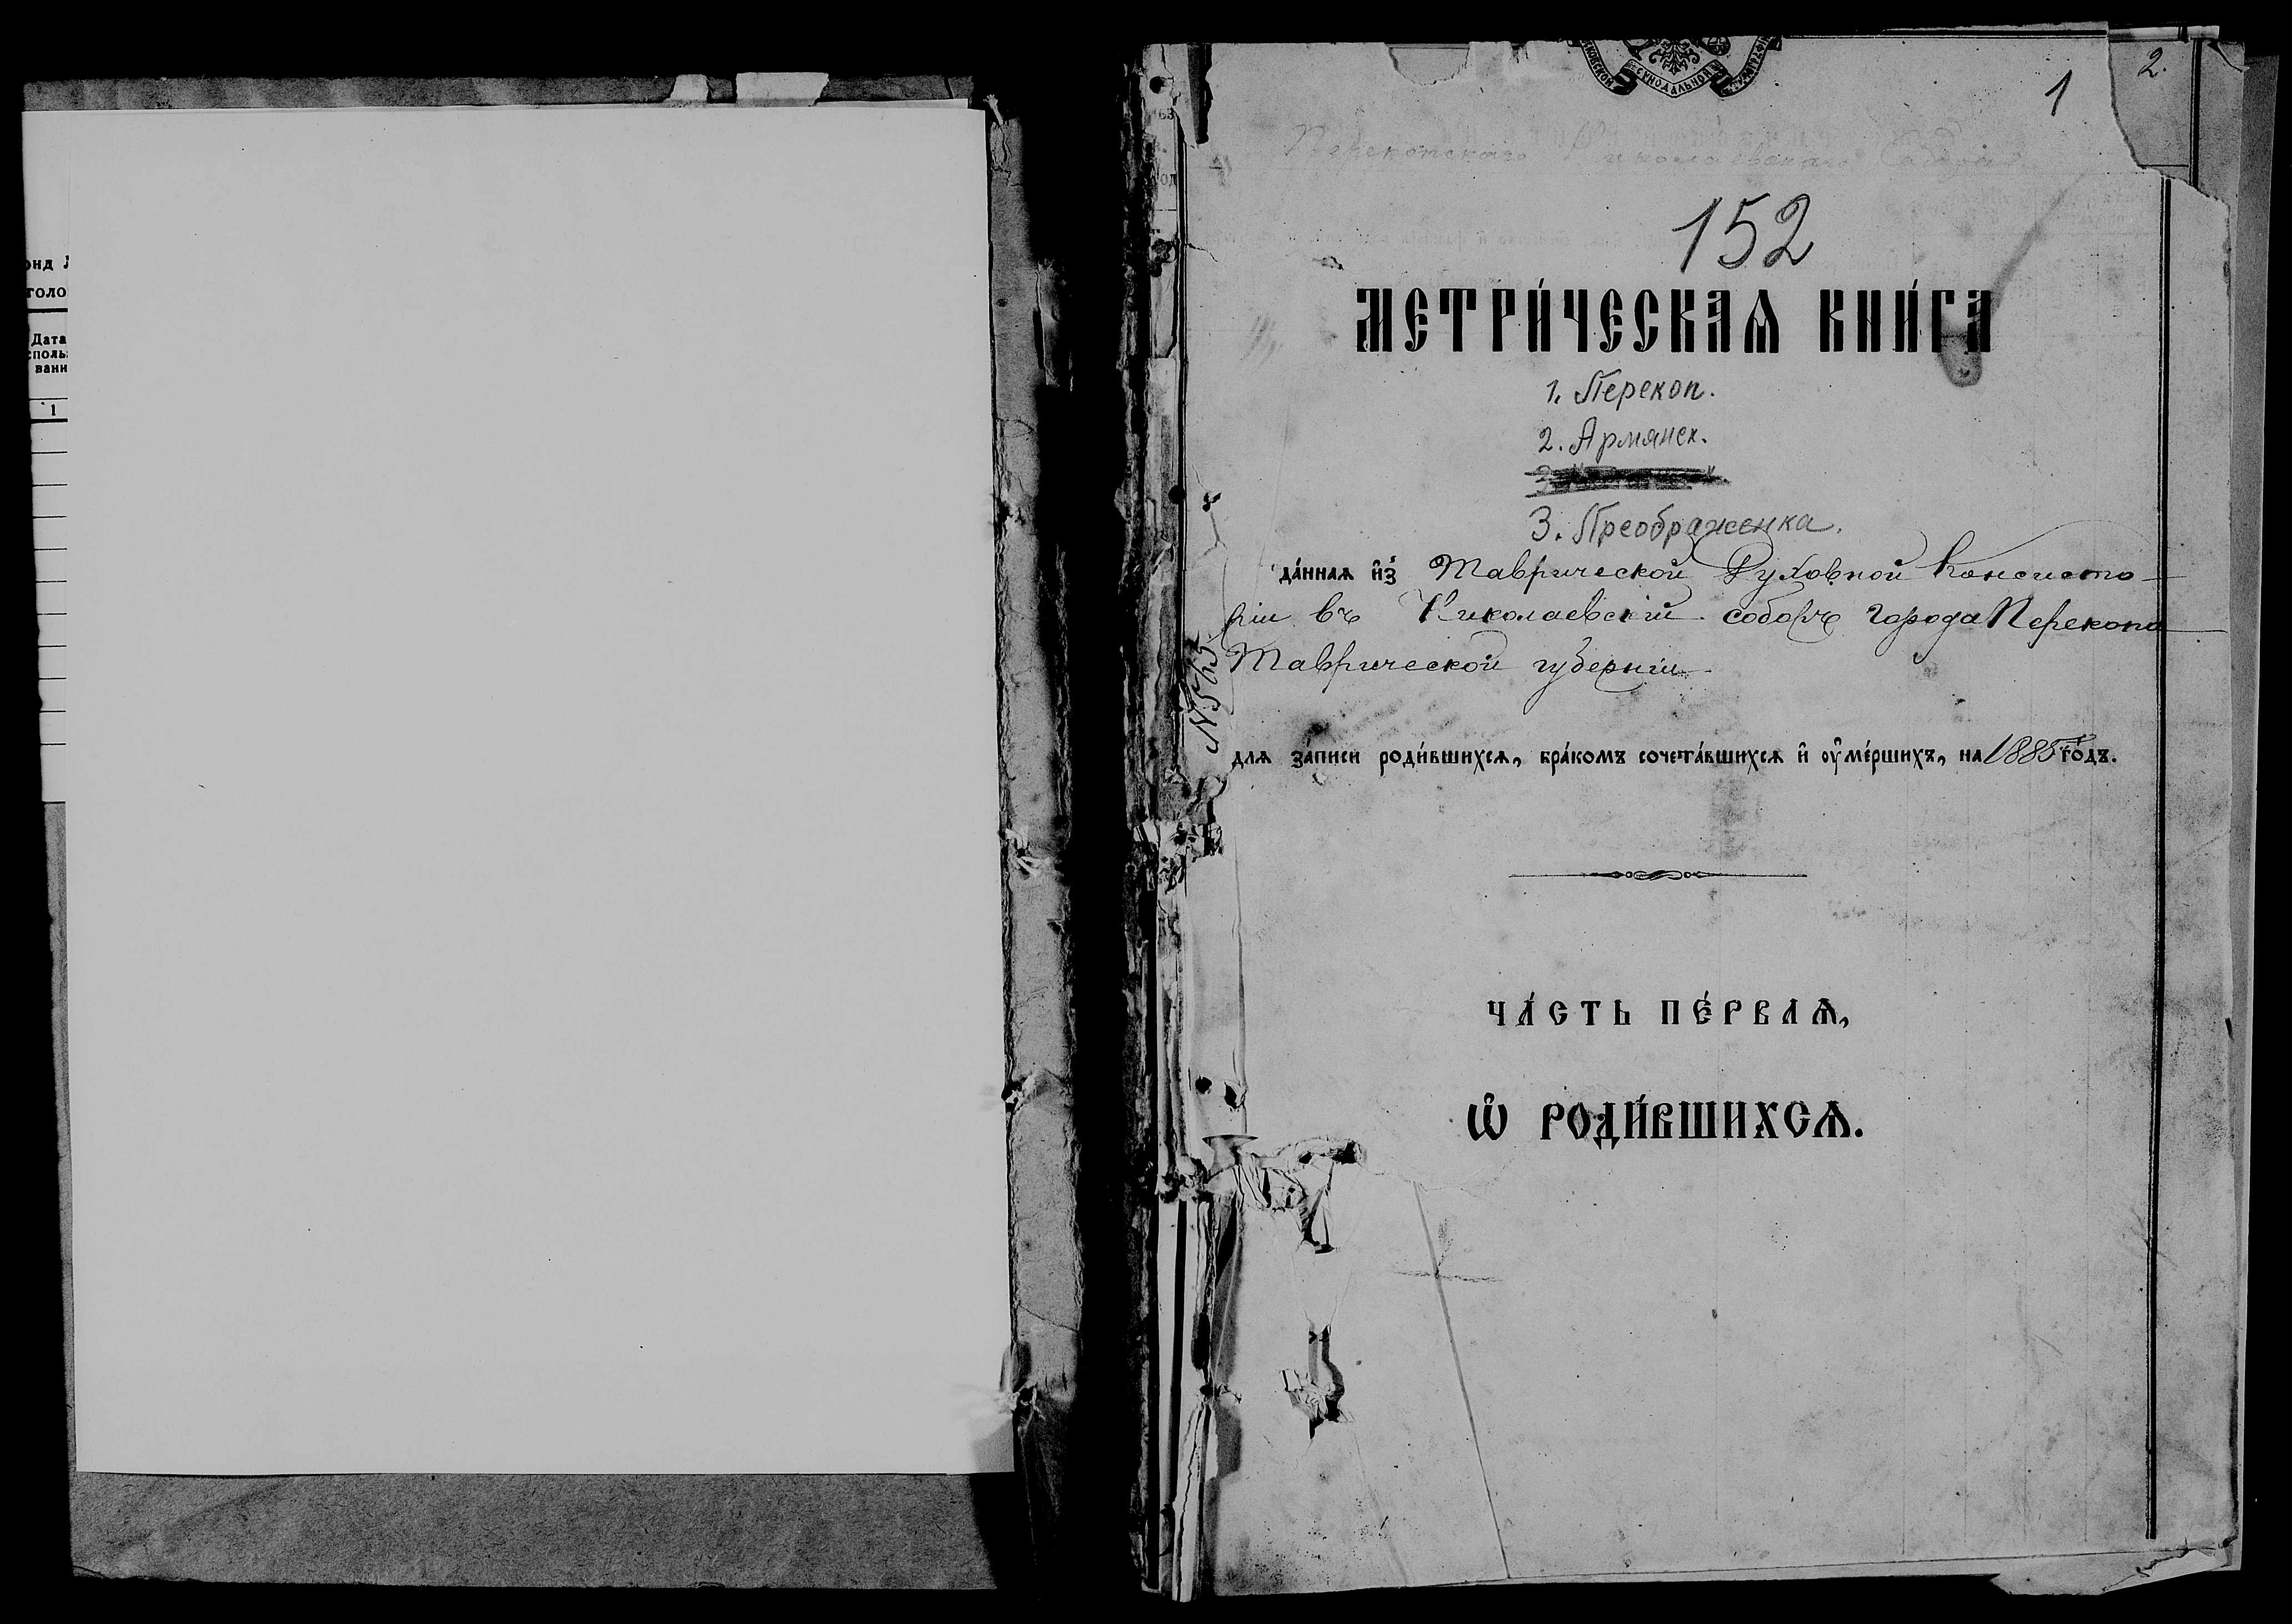 толо
Дата
1
СѴНОДАЛЬНОЙ
2.
1
Перекопскаго Николаевскаго Собора
152
МЕТРИ́ЧЕСКАѦ КНИ́ГА
1. Перекоп.
2. Армянск.
3. Преображенка.
да́ннаѧ и҆з̾ Таврической Духовной Консисто-
ріи въ Николаевскій соборъ города Перекопа
Таврической губерніи
№ 563
для за́писи роди́вшихсѧ, бра́комъ сочета́вшихсѧ и҆ ᲂу҆ме́ршихъ, на 1885 го́дъ.
ЧА́СТЬ ПЕ́РВАѦ,
Ѽ РОДИ́ВШИХСѦ.